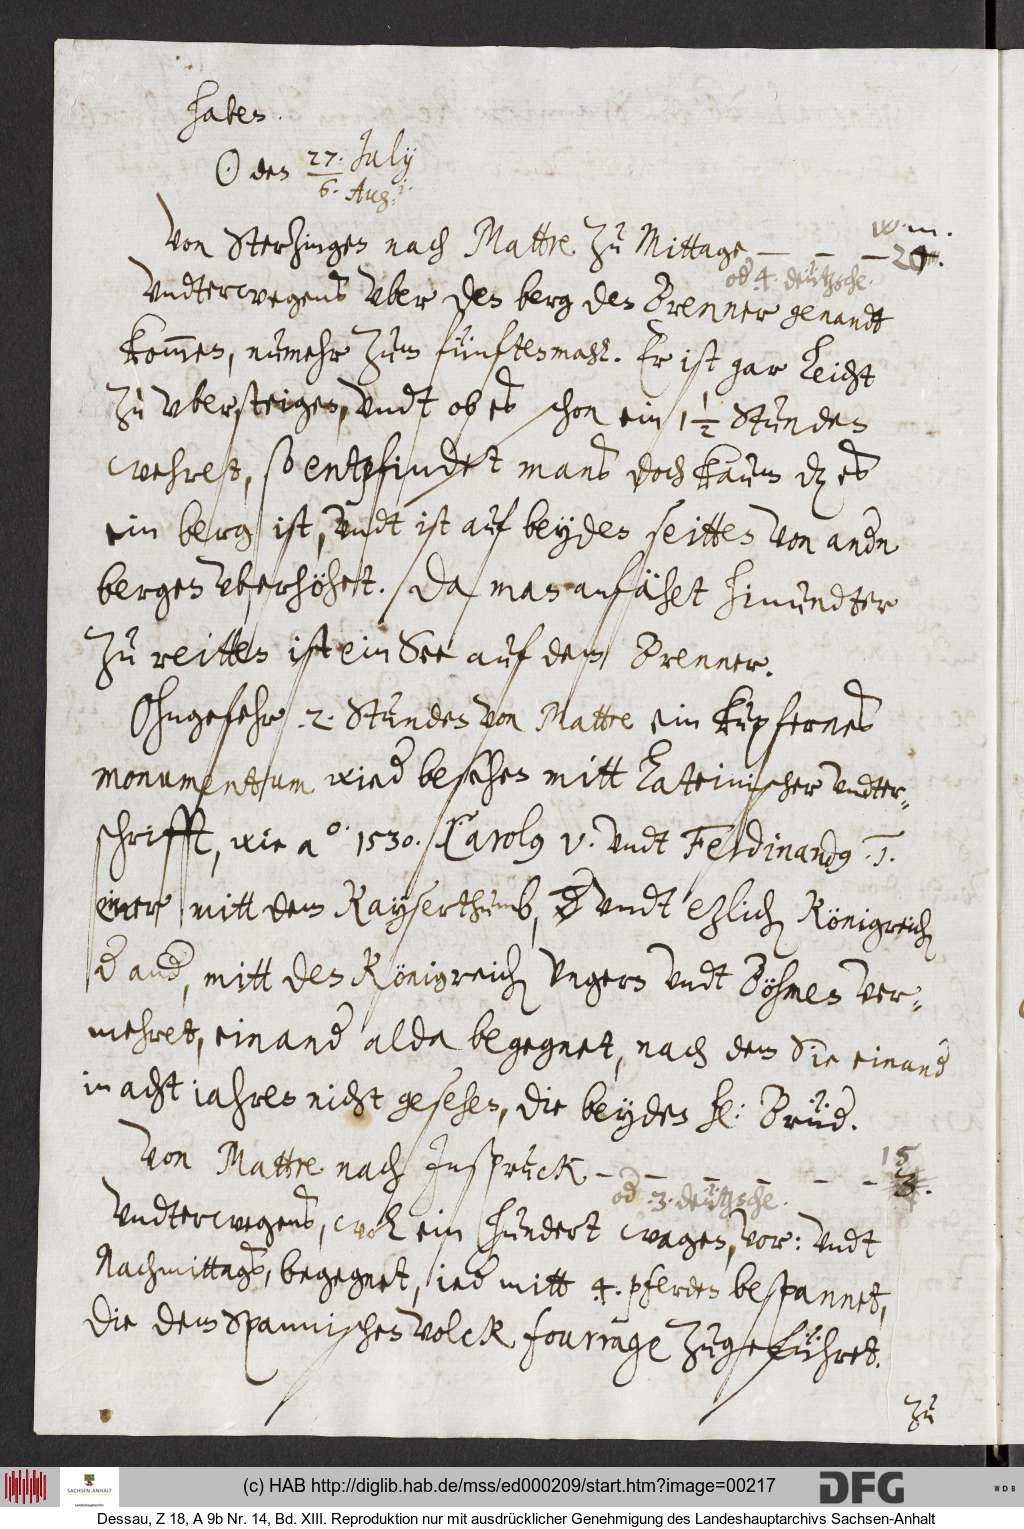 haben.
☉ den 27. July
6. Aug:i.
w. m.
Von Sterzingen nach Mattre zu Mittage – – – 20.
od 4. deützsche.
Vndterwegens vber den berg den Brenner genandt
kom̅en, nümehr züm fünftenmahl. Er ist gar leicht
zü vbersteigen, vndt ob es schon ein 1 1/2 Stünden
wehret, so entpfindet mans doch kaüm dz es
ein berg ist, vndt ist auf beyden seitten von andn
bergen vberhöhet. Da man anfähet hinündter
zü reitten ist ein See auf dem Brenner.
Ohngefehr 2. Stünden von Mattre ein küpfernes
monumentum wied besehen mitt Lateinischer vndter-
schrifft, wie ao. 1530. Carolg V. vndt Ferdinandg I.
einer mitt dem Kayserthümb, vndt ezlich Königreich
d and, mitt den Königreich Vngern vndt Böhmen ver-
mehret, einand alda begegnet, nach dem Sie einand
in acht iahren nicht gesehen, die beyden hl: Brüd.
Von Mattre nach Insprück – – – – – – 15
3.
od .3. deützsche.
Vndterwegens, wol ein hündert wagen, vor: vndt
Nachmittags, begegnet, ied mitt 4. pferden bespannet,
die dem Spannischen volck fourrage zügeführet.
zü
(c) HAB http://diglib.hab.de/mss/ed000209/start.htm?image=00217
SACHSEN-ANHALT
DFG
WDB
Dessau, Z 18, A 9b Nr. 14, Bd. XIII. Reproduktion nur mit ausdrücklicher Genehmigung des Landeshauptarchivs Sachsen-Anhalt